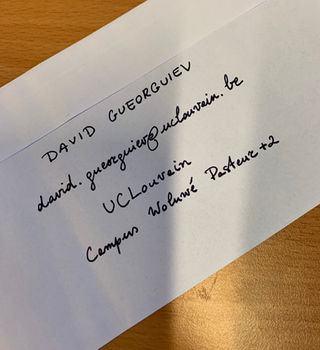 DAVID GUEORGUIEV
david.gueorguiev@uclouvain.be
UCLouvain
Campus Woluwé Pasteur+2